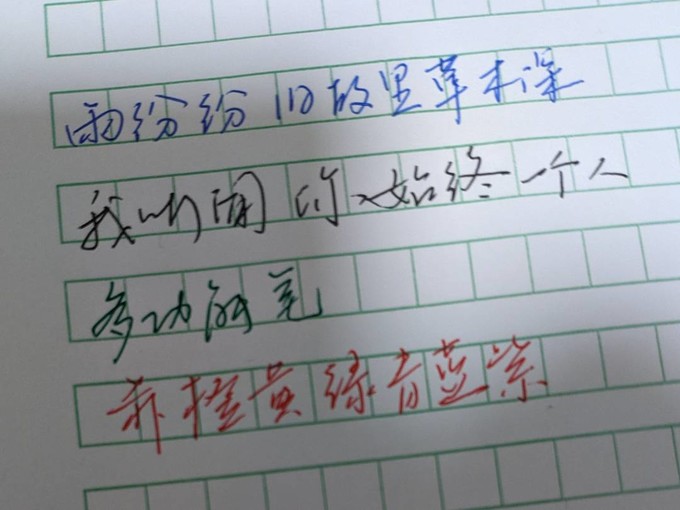 雨纷纷 旧故里草木深
我听闻 你始终一个人
多功能笔
赤橙黄绿青蓝紫